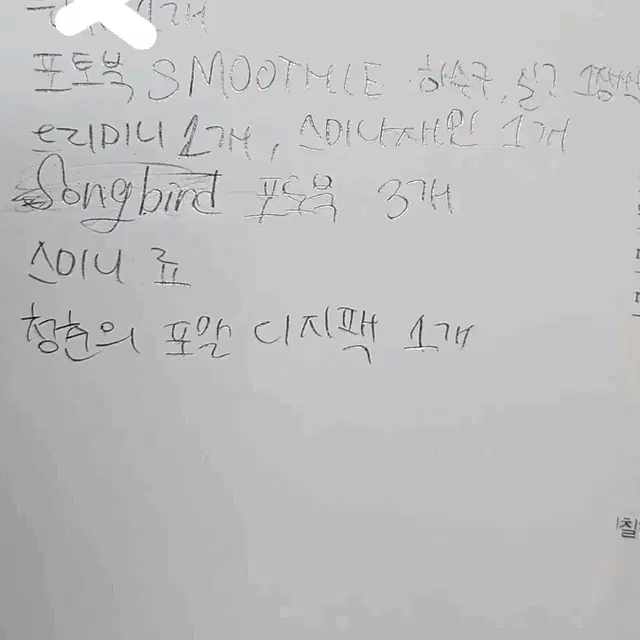 1개
포토북 SMOOTHIE
드리미니 1개, 스미니 재민 1개
Songbird 포토북 3개
스미니 료
청춘의 포말 디지팩 1개
칠